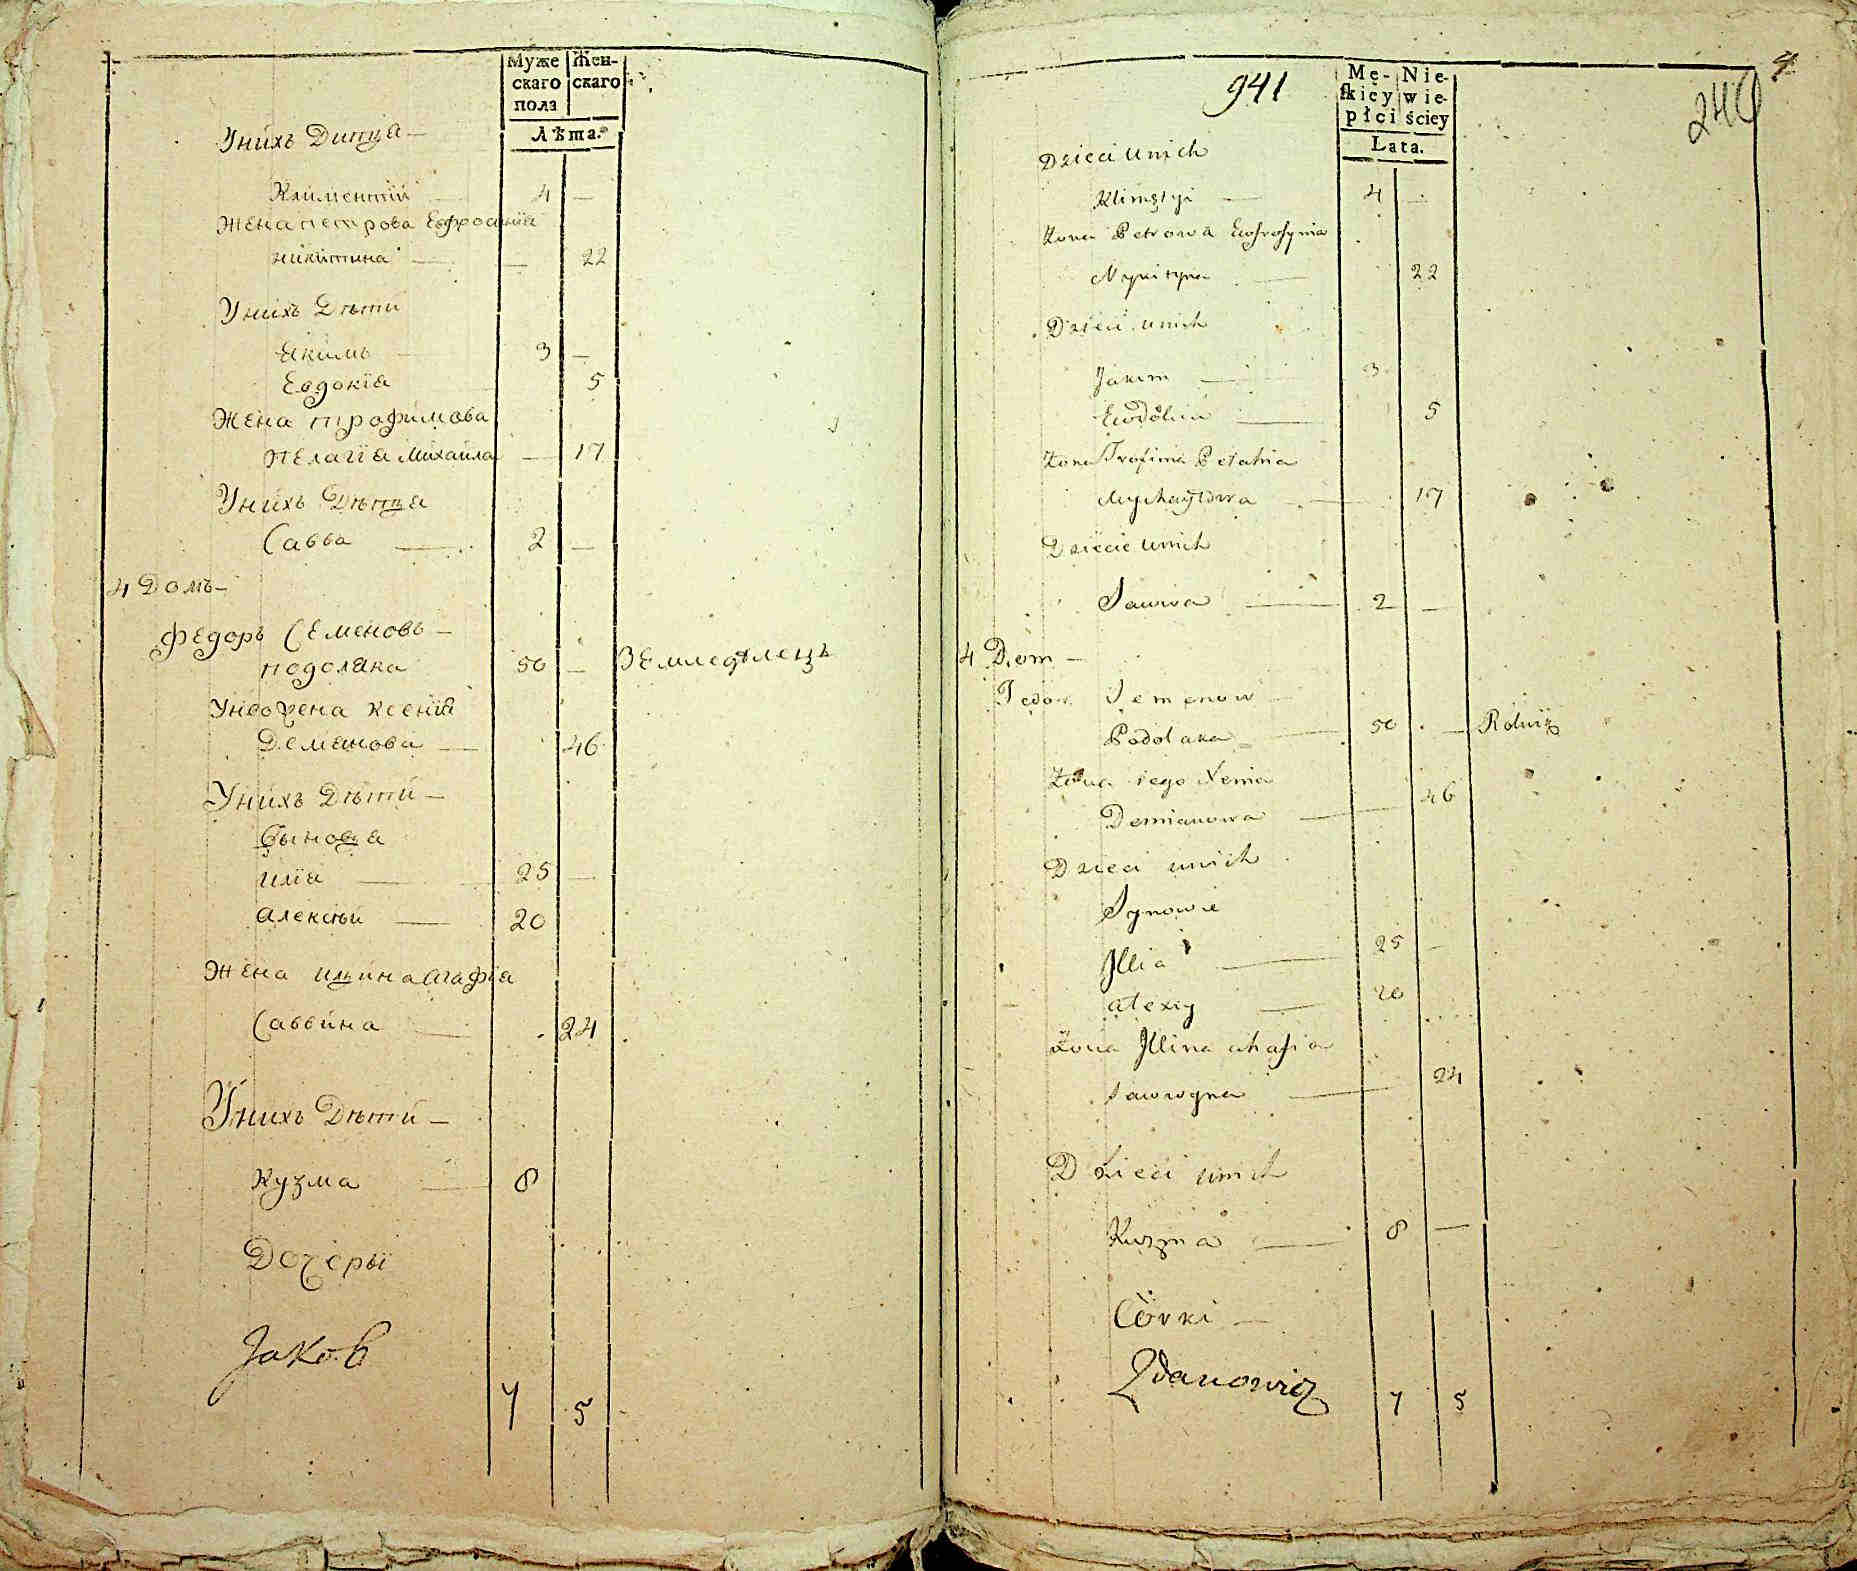 Муже
скаго
пола
Жен-
скаго
Лѣта.
Унихъ Дитця —
Климентïй — 4 —
Жена петрова Евфросинïя
никитина — — 22
Унихъ Дѣти
Якимъ — 3 —
Евдокïя 5
Жена трофимова
пелагïя михайла — 17
Унихъ Дѣтця
Савва — 2 —
4 Домъ —
Федоръ Семеновъ —
подоляка 50 — Земледѣлецъ
Унеочена ксенïя
Демянова — 46
Унихъ Дѣти —
Сыновя
илïя — 25 —
алексѣй — 20
Жена ильина агафïя
Саввина — 24
Унихъ Дѣти —
Кузма — 8
Дочеры
Jaковъ
7 5
4
941
240
Mę-
skiey
płci
Nie-
wie-
ściey
Lata.
Dzieci unich
Klimętyi — 4 —
Zona Petrowa Ewfrosynia
Nykityna — 22
Dzieci unich
Jakim — 3
Ewdokia — 5
Zona Trofima Pelahia
Mychayłowa — 17
Dziecie unich
Sawwa — 2 —
4 Dom —
Fedor Semenow —
Podolaka — 50 — Rolnik
Zona iego Xenia
Demianowa — 46
Dzieci unich
Synowie
Jllia — 25 —
alexiy — 20
Żona Jllina ahafia
Sawwyna — 24
Dzieci unich
Kuzma — 8 —
Córki —
Zdanowicz
7 5